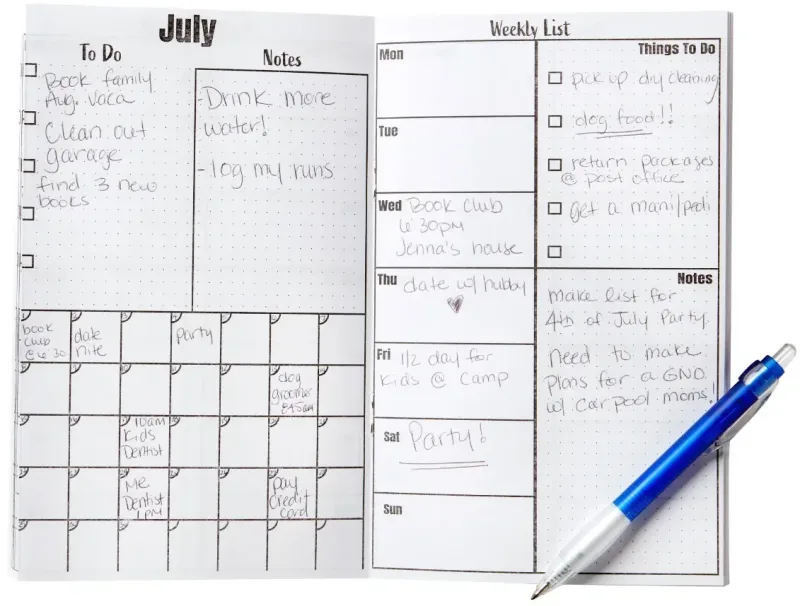 July
To Do
Book family
Aug. Vaca
Clean out
garage
find 3 new
books
Notes
-Drink more
water!
-log my runs
book
club
@ 6:30
date
nite
Party
dog
groomer
845am
10am
Kids
Dentist
Me
Dentist
1PM
pay
credit
card
Weekly List
Mon
Tue
Wed Book Club
6:30PM
Jenna's house
Thu date w/ hubby
Fri 1/2 day for
Kids @ Camp
Sat Party!
Sun
Things To Do
pick up dry cleaning
dog food!!
return packages
@ post office
get a mani/pedi
Notes
make list for
4th of July Party.
need to make
Plans for a GNO
w/ carpool moms!